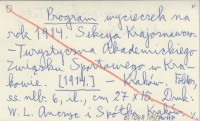 Program wycieczek na
rok 1914. Sekcya Krajoznawczo
-Turystyczna Akademickiego
Związku Sportowego w Kra-
kowie. [1914.] - Kraków. Folio,
ss. nlb. 6, il., cm 27.15. Druk.
W. L. Anczyc i Spółka, Kraków.